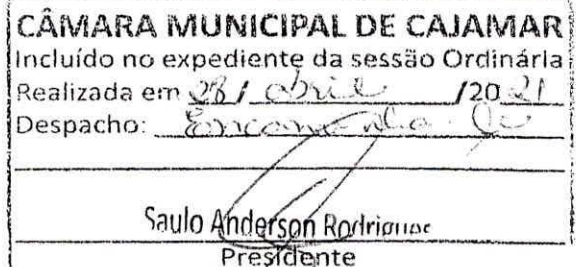 CÂMARA MUNICIPAL DE CAJAMAR
Incluído no expediente da sessão Ordinária
Realizada em 28 / abril /20 21
Despacho:
Saulo Anderson Rodrigues
Presidente